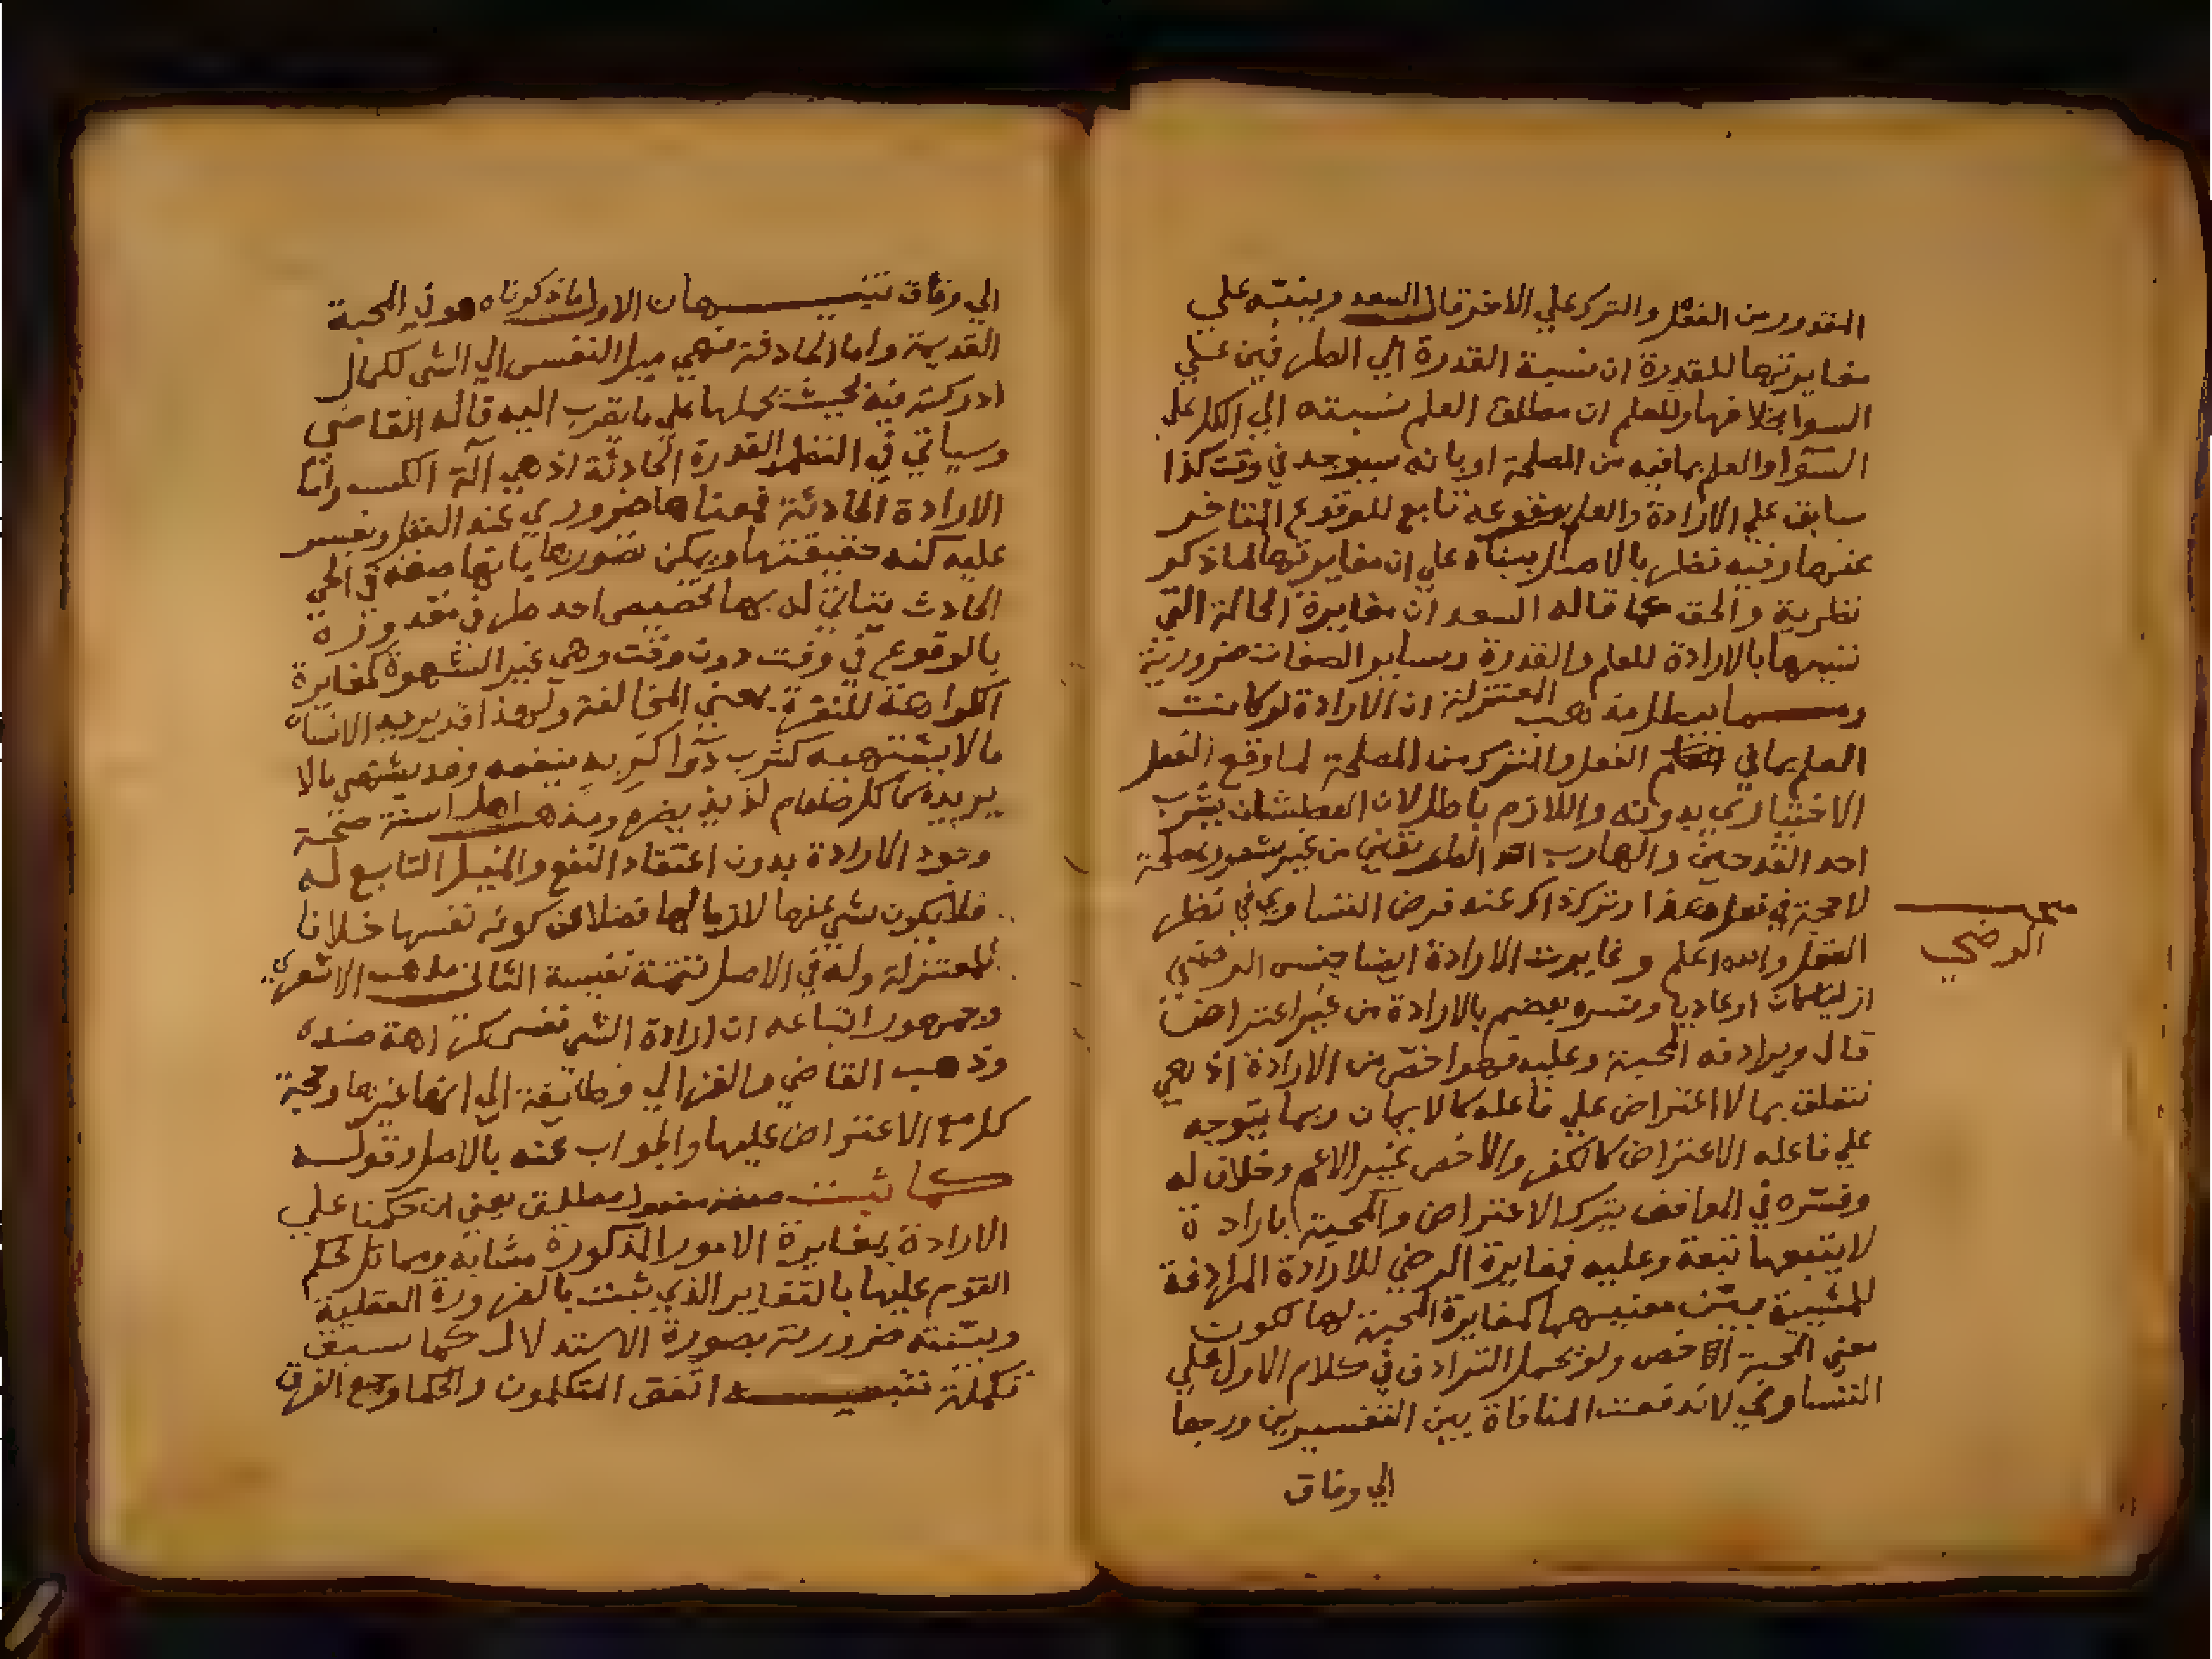 المقدور من الفعل والترك علي الاخر قال السعد وينبه علي
مغايرتها للقدرة ان نسبة القدرة الي الطرفين علي
السوا بخلافها وللعلم ان مطلق العلم نسبته الي الكل علي
السوا والعلم بما فيه من المصلحة او بانه سيوجد في وقت كذا
سابق علي الارادة والعلم بوقوعه تابع للوقوع المتاخر
عنها وفيه نظر بالاصل بيناه علي ان مغايرتها لما ذكر
نظرية والحق كما قاله السعد ان مغايرة الحالة التي
نسميها بالارادة للعلم والقدرة وساير الصفات ضرورية
ومما يبطل مذهب المعتزلة ان الارادة لو كانت
العلم بما في الفعل والترك من المصلحة لما وقع الفعل
الاختياري بدونه واللازم باطل لان العطشان يشرب
احد القدحين والهارب احد الطريقين من غير شعور بمصلحة
راجحة في فعل هذا وترك ذاك عند فرض التساوي في نظر
العقل والله اعلم وغايرت الارادة ايضا جنس الرضي
مبحث
الرضي
ازليا كان او عاديا وفسره بعضهم بالارادة من غير اعتراض
قال ويرادفه المحبة وعليه فهو اخص من الارادة اذ هي
تتعلق بما لا اعتراض علي فاعله كالايمان وبما يتوجه
علي فاعله الاعتراض كالكفر والاخص غير الاعم وخلاف له
وفسره في المواقف بترك الاعتراض والمحبة بارادة
لا يتبعها تبعة وعليه فمغايرة الرضي للارادة المرادفة
للمشيية بين معنييهما كمغايرة المحبة لها لكون
معني المحبة اخص ولو حمل الترادف في كلام الاول علي
التساوي لاندفعت المنافاة بين التفسيرين ورجعا
الي وفاق
الي وفاق تنبيهان الاول ما ذكرناه هو في المحبة
القديمة واما الحادثة فهي ميل النفس الي الشي لكمال
ادركته فيه بحيث يحملها علي ما يقرب اليه قاله القاضي
وسياتي في النظم القدرة الحادثة اذ هي آلة الكسب واما
الارادة الحادثة فمعناها ضروري عند العقل ويعسر
عليه كنه حقيقتها ويمكن تصورها بانها صفة في الحي
الحادث يتاتي له بها تخصيص احد طرفي مقدوره
بالوقوع في وقت دون وقت وهي غير الشهوة كمغايرة
الكراهة للنفرة بمعني المخالفة ولهذا قد يريد الانسان
ما لا يشتهيه كشرب دوا كريه ينفعه وقد يشتهي ما لا
يريده كاكل طعام لذيذ يضره ومذهب اهل السنة صحة
وجود الارادة بدون اعتقاد النفع والميل التابع له
فلا يكون شي منها لازما لها فضلا عن كونه نفسها خلافا
للمعتزلة وله في الاصل تتمة نفيسة الثاني مذهب الاشعري
وجمهور اتباعه ان ارادة الشي نفس كراهة ضده
وذهب القاضي والغزالي وطايفة الي انها غيرها وحجة
كل مع الاعتراض عليها والجواب عنه بالاصل وقوله
كما ثبت صفة مفعول مطلق يعني ان حكمنا علي
الارادة بمغايرة الامور المذكورة مشابه ومماثل لحكم
القوم عليها بالتغاير الذي ثبت بالضرورة العقلية
وبينته ضرورية بصورة الاستدلال كما سبق
تكملة تنبيه اتفق المتكلمون والحكما وجميع الفرق